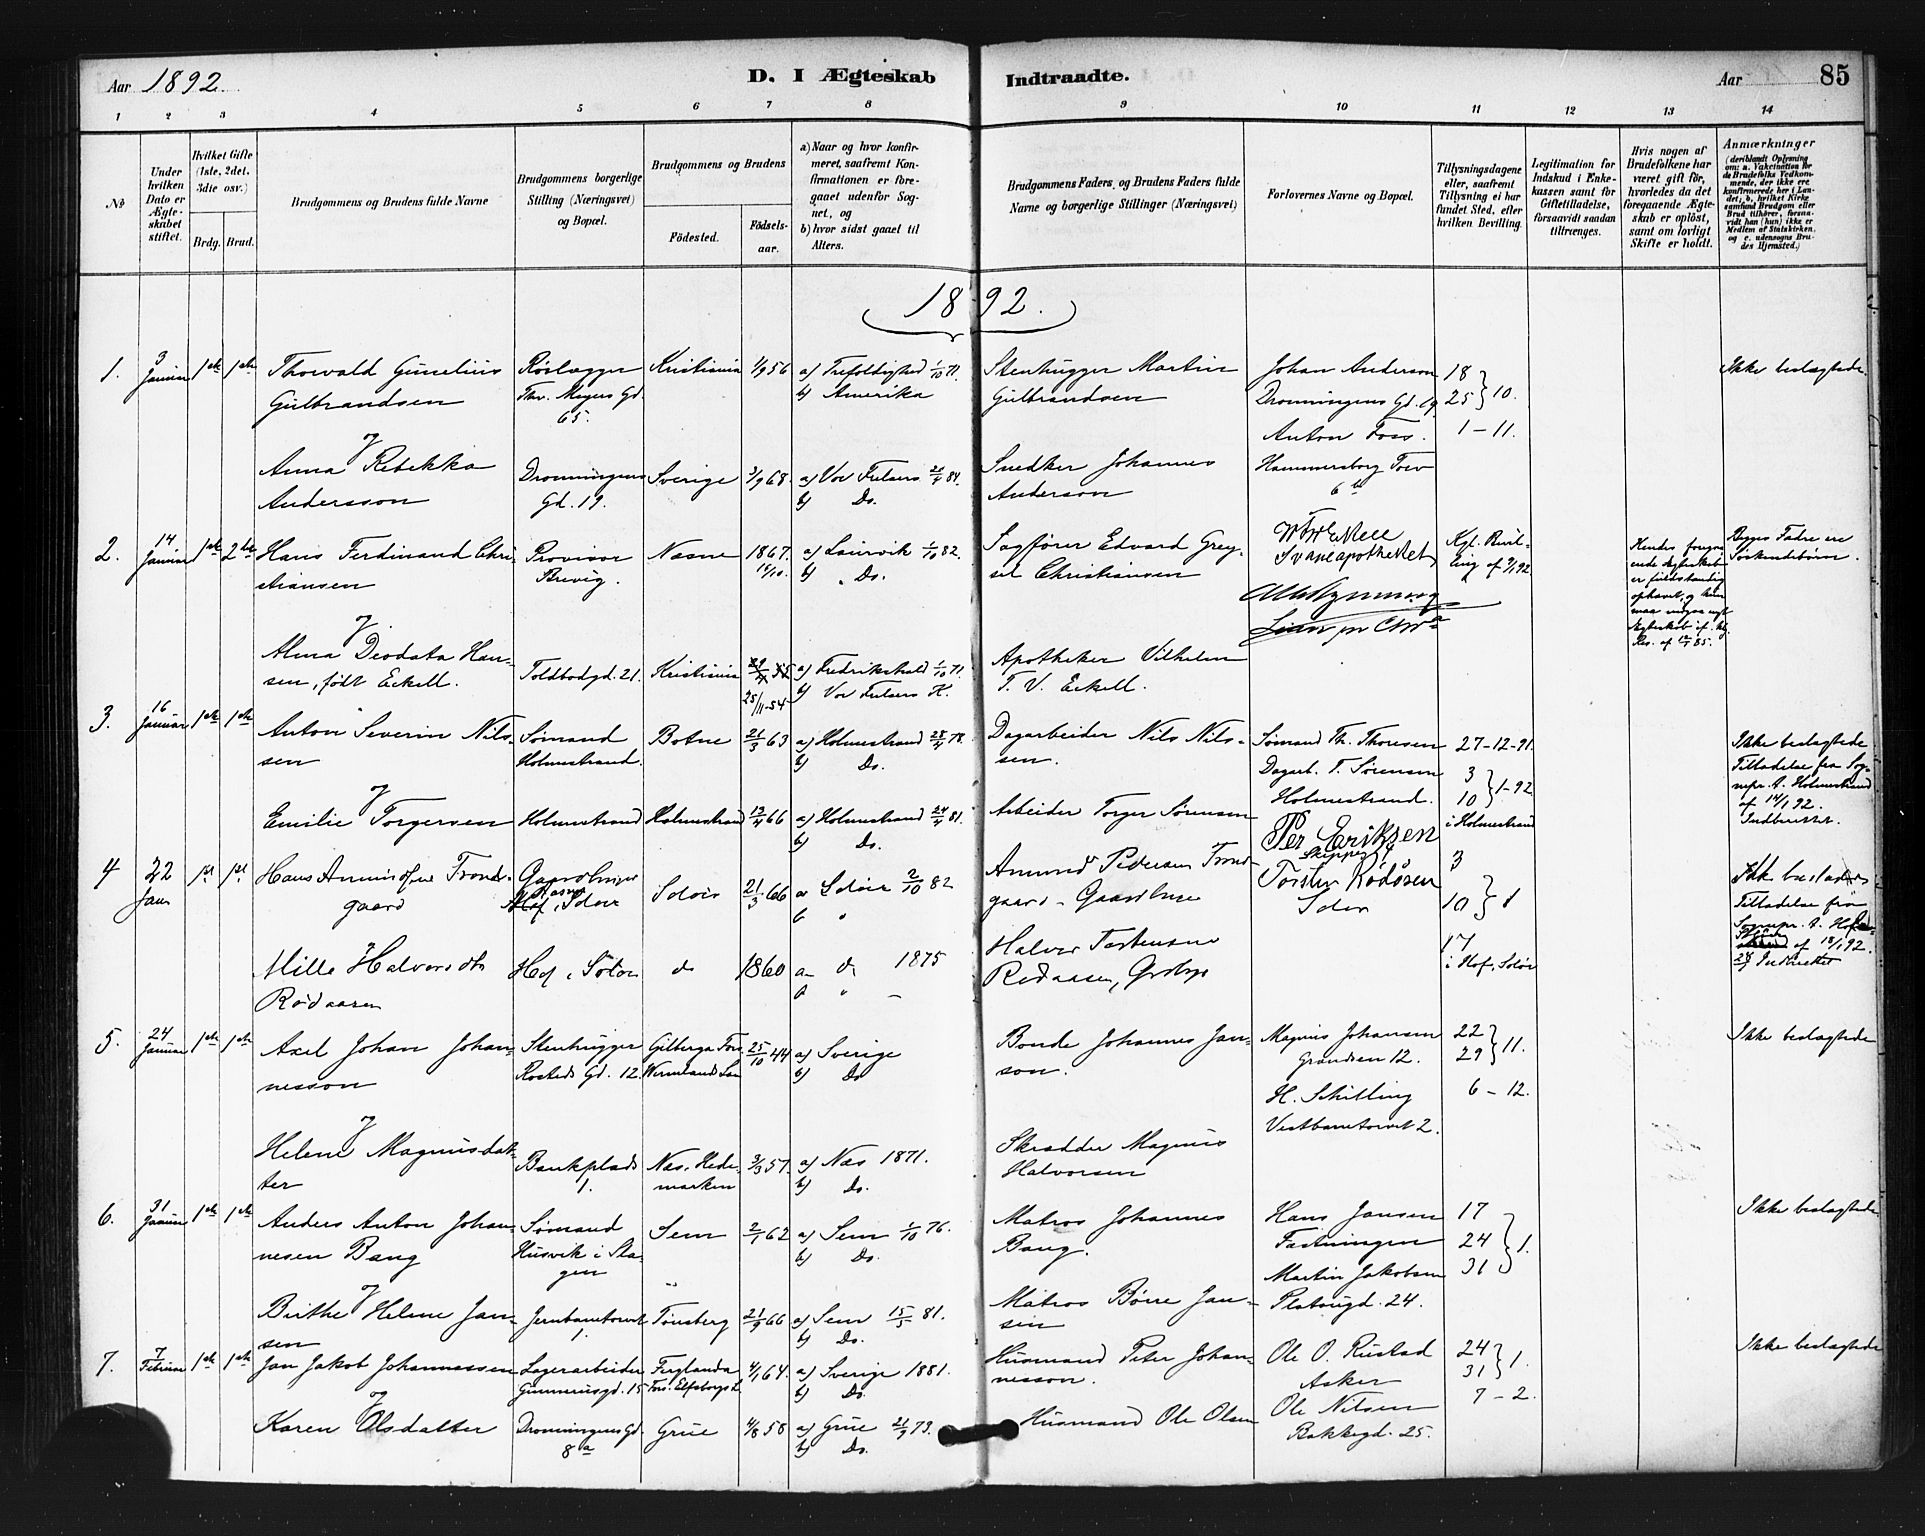 Aar 1892.
D. I Ægteskab Indtraadte.
Aar 85
1 2 3 4 5 6 7 8 9 10 11 12 13 14
No
Under hvilken Dato er Ægteskabet stiftet.
Hvilket Gifte (1ste, 2det, 3die osv.)
Brdg. Brud.
Brudgommens og Brudens fulde Navne
Brudgommens borgerlige Stilling (Næringsvei) og Bopæl.
Brudgommens og Brudens
Fødested.
Fødselsaar.
a) Naar og hvor konfirmeret, saafremt Konfirmationen er foregaaet udenfor Sognet, og
b) hvor sidst gaaet til Alters.
Brudgommens Faders, og Brudens Faders fulde Navne og borgerlige Stillinger (Næringsvei)
Forlovernes Navne og Bopæl.
Tillysningsdagene eller, saafremt Tillysning ei har fundet Sted, efter hvilken Bevilling.
Legitimation for Indskud i Enkekassen samt for Giftetilladelse, forsaavidt saadan tiltrænges.
Hvis nogen af Brudefolkene har været gift før, hvorledes da det foregaaende Ægteskab er opløst, samt om lovligt Skifte er holdt.
Anmærkninger
1892.
1. 3 Januar 1ste 1ste Thorvald Gunelius Gulbrandsen
Rørlægger Thv. Meyers Gd. 65.
Kristiania 1/9 56
a) Trefoldighed 1/10 71.
b) Amerika
Stenhugger Martin Gulbrandsen
Johan Anderson
Dronningens Gd. 19
Anton Foss.
Hammersborg Torv 6 b
18
25 } 10.
1 - 11.
Ikke beslægtede.
&
Anna Rebekka Andersson
Dronningens Gd. 19.
Sverige 3/9 68.
a) Vor Frelsers 20/4 84.
b) Do.
Snedker Johannes Anderson
2. 14 Januar 1ste 2det Hans Ferdinand Christiansen
Provisor Brevig.
Næsne 1867. 16/10.
a) Laurvik 1/10 82.
b) Do.
Sagfører Edvard Christiansen
Svaneapotheket
Kgl. Bevilling af 9/1 92
&
Alma Deodata Hansen, født Eckell.
Toldbodgd. 21.
Kristiania
25/11-54
a) Fredrikshald 1/10 71.
b) Vor Frelsers K.
Apotheker Vilhelm T. V. Eckell.
3. 16 Januar 1ste 1ste Anton Severin Nilssen
Sømand Holmestrand.
Botne 21/3 63
a) Holmestrand 28/4 78.
b) Do.
Dagarbeider Nils Nilssen.
Sømand Th. Thoresen
Dagarb. T. Sørensen
Holmestrand.
27-12-91.
3
10 } 1-92
i Holmestrand
Ikke beslægtede
Tilladelse fra Sognepr. t. Holmestrand af 14/1 92.
Indberettet.
&
Emilie Torgersen
Holmestrand Holmestrand 13/4 66
a) Holmestrand 24/4 81.
b) Do.
Arbeider Torger Sørensen
4 22 Jan 1st 1st Hans Amundsen Trondgaard
Hof, Solør
Solør 21/3 66
a Solør 2/10 82
b "
Amund Pedersen Trondgaard - Gaardbruger
Per Eriksen
Skipper
Torsten Rødøsen
Solør
3
10 } 1
17
i Hof, Solør
Ikke beslægtede
Tilladelse fra Sognepr. t. Hof af 18/1 92.
Indberettet
&
Mille Halvorsdtr Rødaasen
Hof, Solør do 1860
a do 1875
b " -
Halvor Torstensen Rødaasen
5. 24 Januar 1ste 1ste Axel Johan Johannesson
Stenhugger Rosteds Gd. 12.
Gilberga Fors. Wermlands Län 25/10 44
a) Sverige
b) Do
Bonde Johannes Janson.
Magnus Johansen
Grændsen 12.
H. Schilling
Vestbanetorvet 2.
22
29 } 11.
6 - 12.
Ikke beslægtede
&
Helene Magnusdatter
Bankplads 1.
Næs, Hedemarken 3/3 57.
a) Næs 1871.
b) Do.
Skrædder Magnus Halvorsen
6. 31 Januar 1ste 1ste Anders Anton Johannesen Bang
Sømand Husvik i Slagen
Sem 2/1 62
a) Sem 1/10 76.
b) Do.
Matros Johannes Bang.
Hans Jansen
Fæstningen
Martin Jakobsen
Platougd. 24.
17
24
31 } 1.
Ikke beslægtede
&
Birthe Helene Jansen
Jernbanetorvet 1.
Tønsberg 21/9 66
a) Sem 15/5 81.
b) Do.
Matros Børre Jansen
7. 7 Februar 1ste 1ste Jan Jakob Johannessen
Lagerarbeider Gunnerusgd. 15
Färglanda Fors. Elfsborgs L. 4/1 64.
a) Sverige 1881.
b) Do.
Husmand Peter Johannesson.
Ole O. Rustad
Asker
Ole Nilsen
Bakkegd. 25.
24
31 } 1.
7 - 2.
Ikke beslægtede
&
Karen Olsdatter
Dronningens Gd. 8 a
Grue 4/8 58
a) Grue 21/9 73.
b) Do.
Husmand Ole Olsen